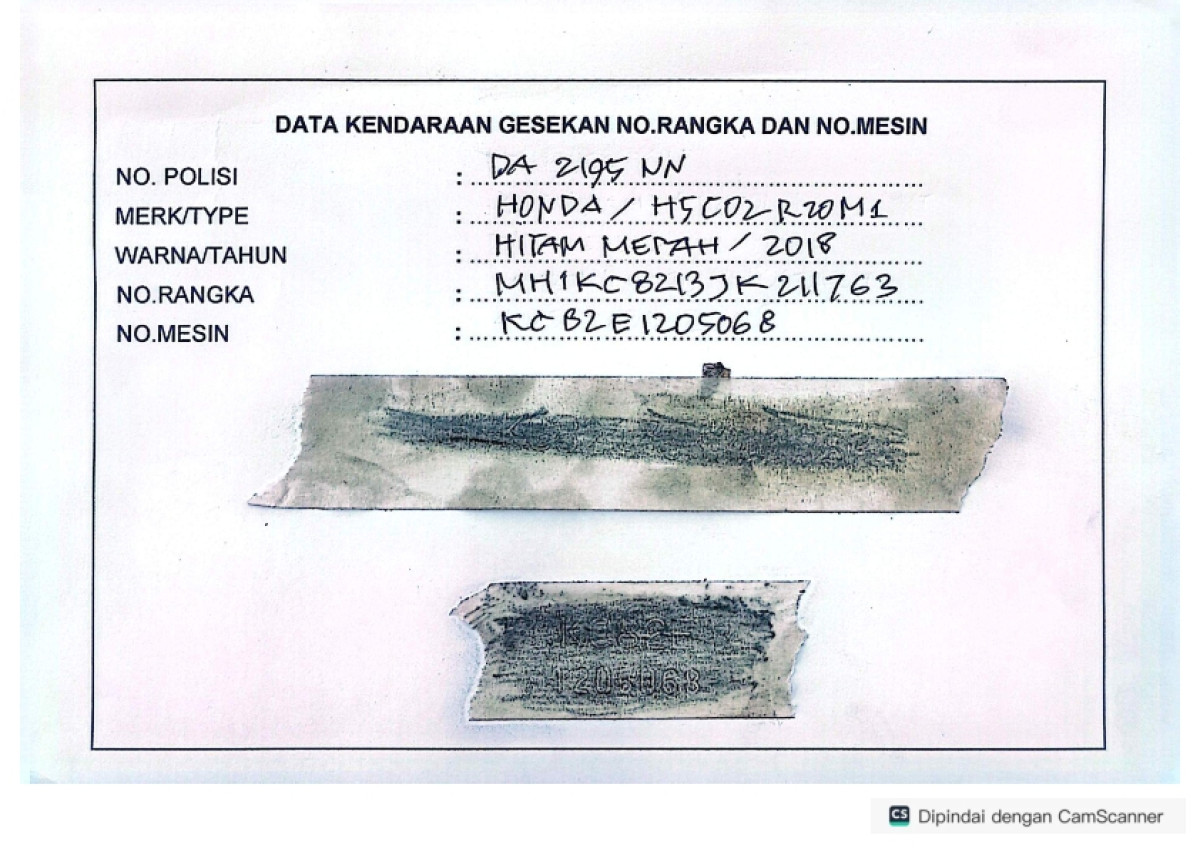 DATA KENDARAAN GESEKAN NO.RANGKA DAN NO.MESIN
NO. POLISI : DA 2195 NN
MERK/TYPE : HONDA / H5C02R20M1
WARNA/TAHUN : HITAM MERAH / 2018
NO.RANGKA : MH1KC8213JK211763
NO.MESIN : KC82E1205068
1205068
CS Dipindai dengan CamScanner